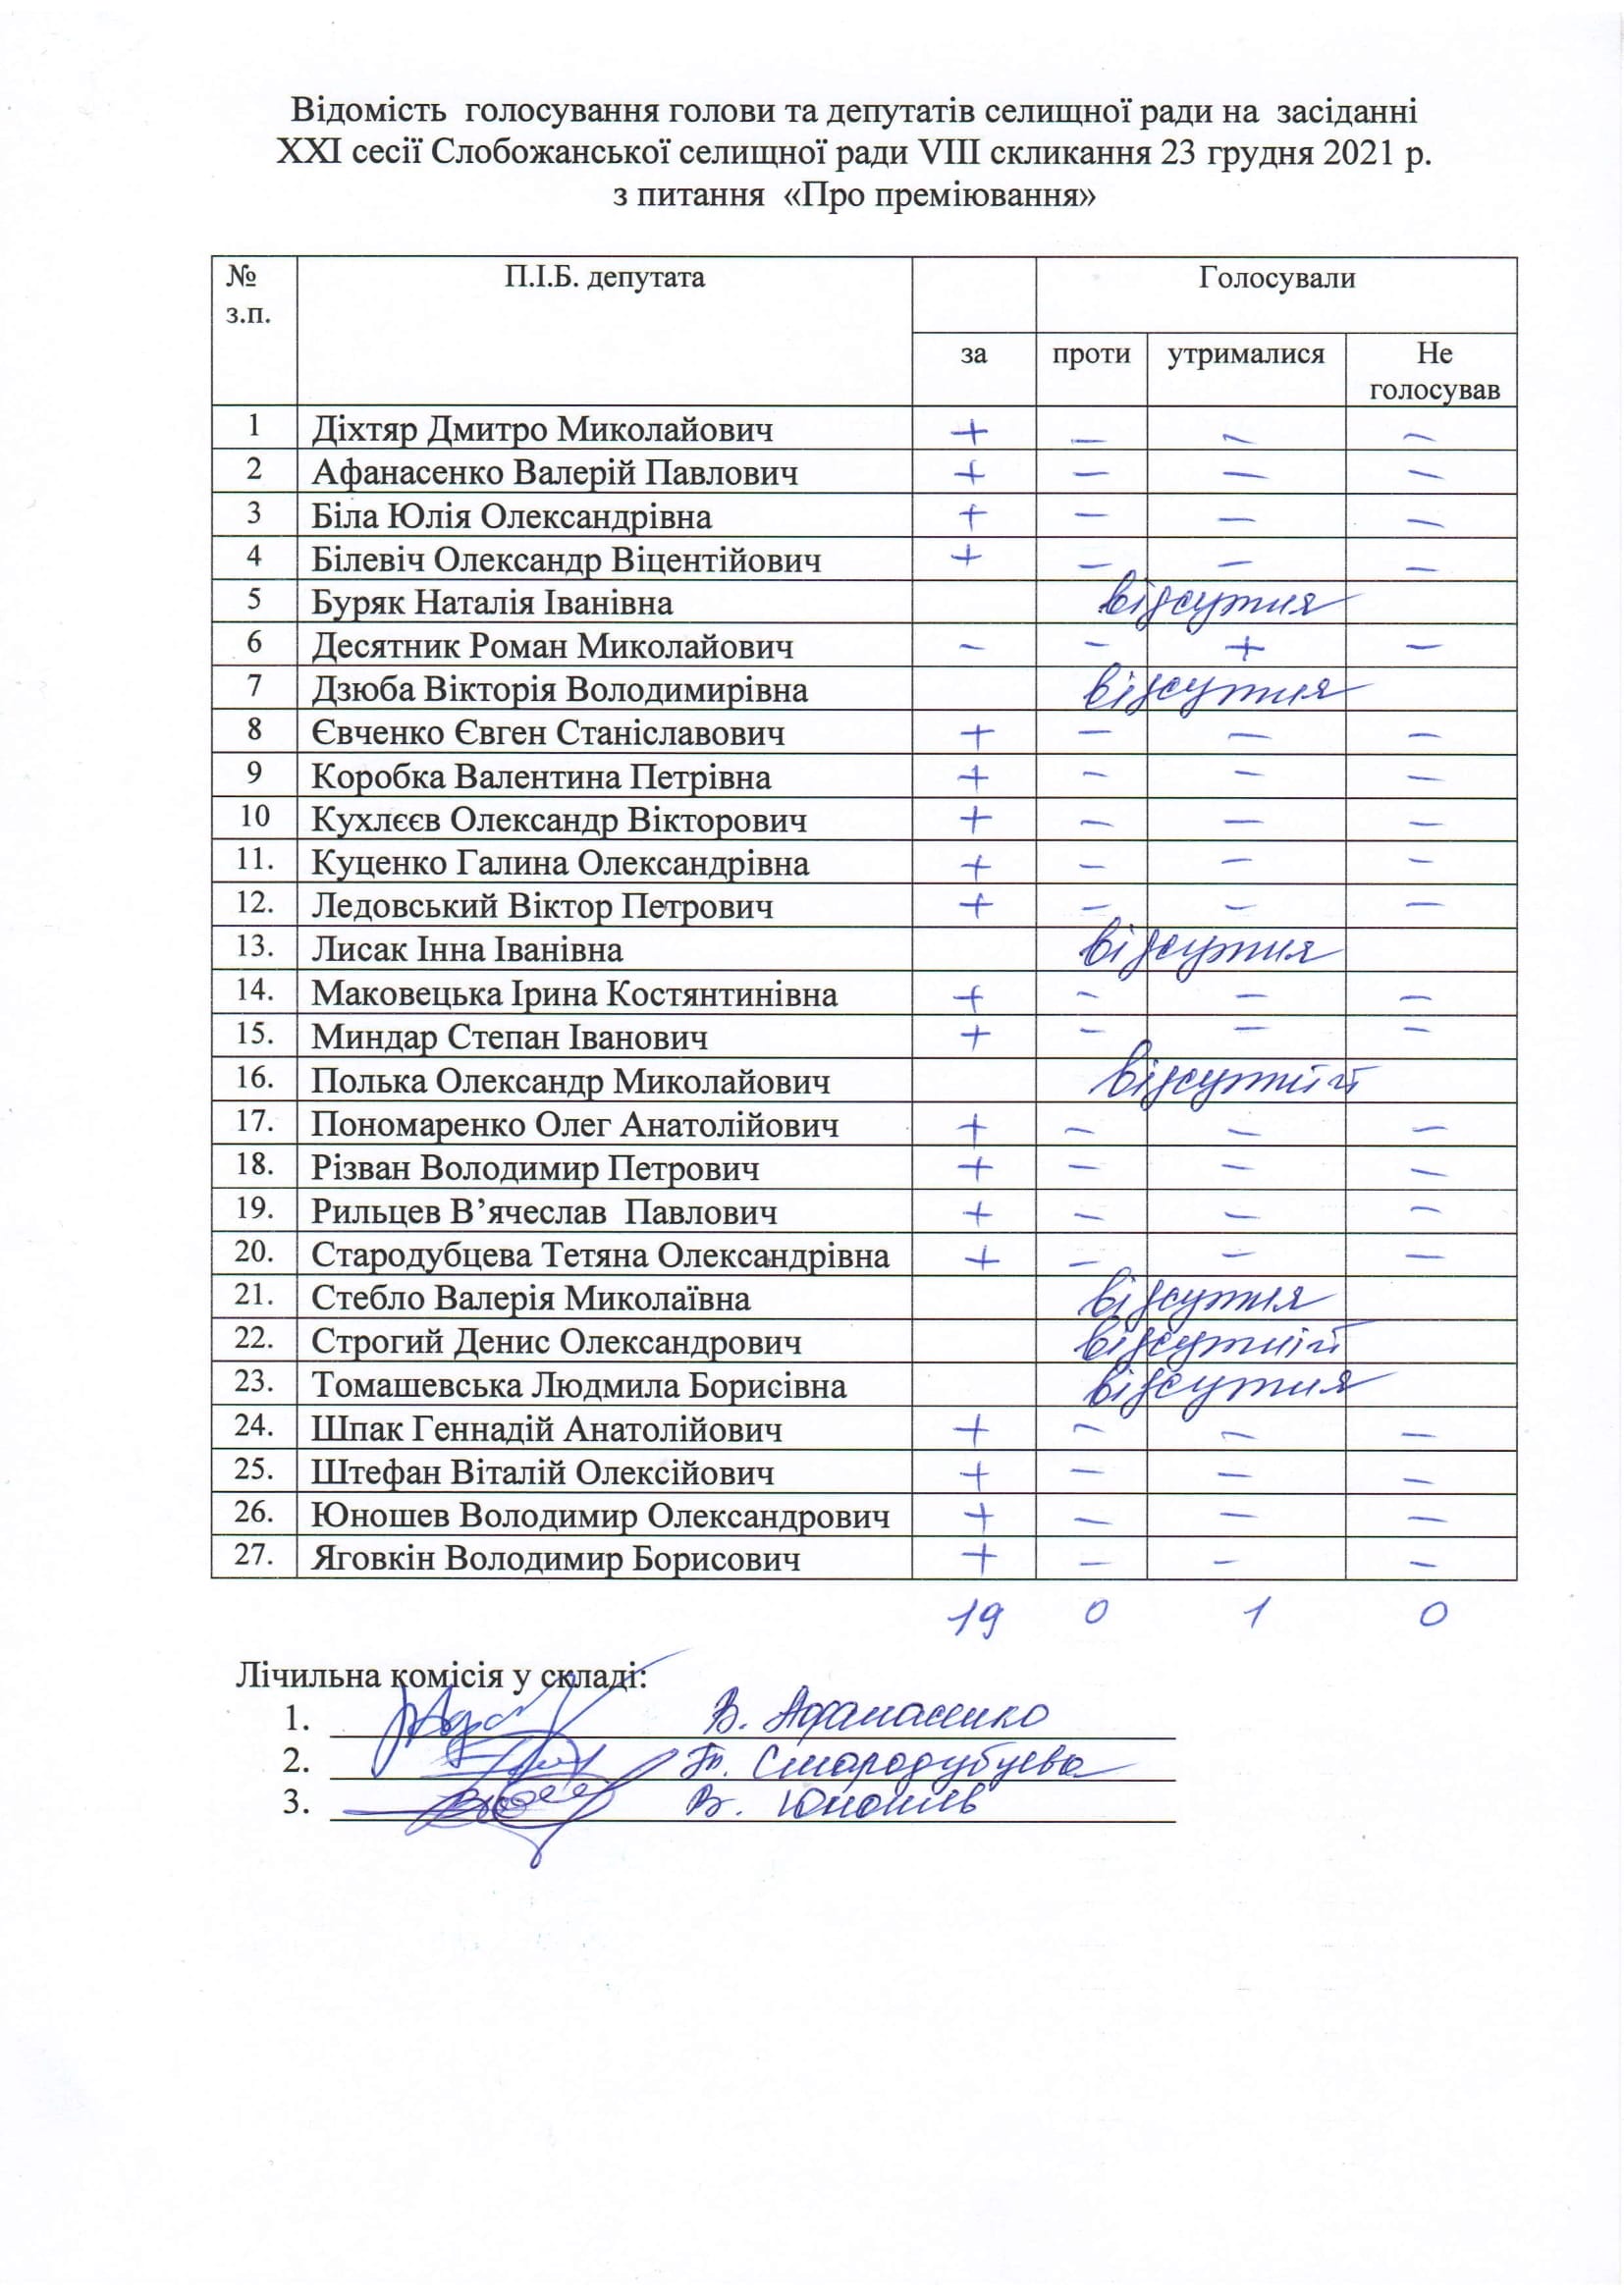 Відомість голосування голови та депутатів селищної ради на засіданні
ХХІ сесії Слобожанської селищної ради VIII скликання 23 грудня 2021 р.
з питання «Про преміювання»
№ з.п. П.І.Б. депутата Голосували
за проти утрималися Не голосував
1 Діхтяр Дмитро Миколайович + – – –
2 Афанасенко Валерій Павлович + – – –
3 Біла Юлія Олександрівна + – – –
4 Білевіч Олександр Віцентійович + – – –
5 Буряк Наталія Іванівна відсутня
6 Десятник Роман Миколайович – – + –
7 Дзюба Вікторія Володимирівна відсутня
8 Євченко Євген Станіславович + – – –
9 Коробка Валентина Петрівна + – – –
10 Кухлєєв Олександр Вікторович + – – –
11. Куценко Галина Олександрівна + – – –
12. Ледовський Віктор Петрович + – – –
13. Лисак Інна Іванівна відсутня
14. Маковецька Ірина Костянтинівна + – – –
15. Миндар Степан Іванович + – – –
16. Полька Олександр Миколайович відсутній
17. Пономаренко Олег Анатолійович + – – –
18. Різван Володимир Петрович + – – –
19. Рильцев В’ячеслав Павлович + – – –
20. Стародубцева Тетяна Олександрівна + – – –
21. Стебло Валерія Миколаївна відсутня
22. Строгий Денис Олександрович відсутній
23. Томашевська Людмила Борисівна відсутня
24. Шпак Геннадій Анатолійович + – – –
25. Штефан Віталій Олексійович + – – –
26. Юношев Володимир Олександрович + – – –
27. Яговкін Володимир Борисович + – – –
19 0 1 0
Лічильна комісія у складі:
1. В. Афанасенко
2. Т. Стародубцева
3. В. Юношев